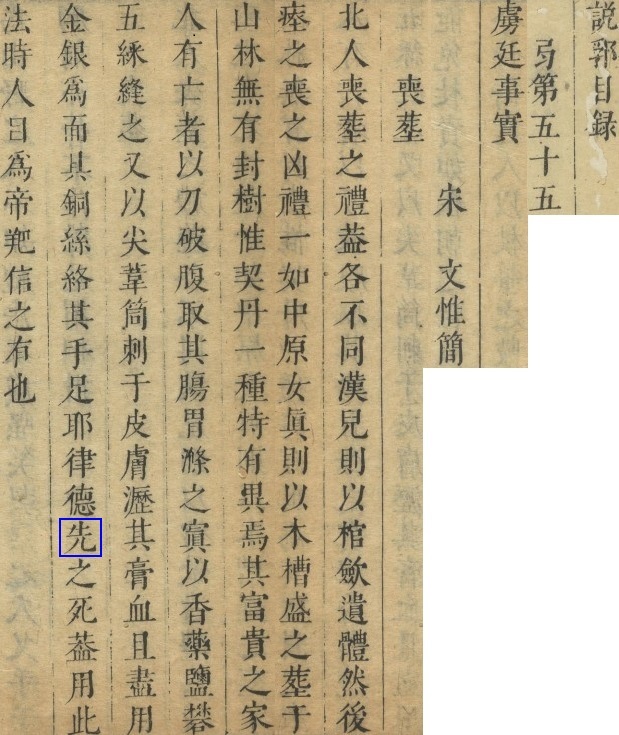 說郛目錄
弓第五十五
虜廷事實
宋　文惟簡
喪塟
北人喪塟之禮葢各不同漢兒則以棺歛遺體然後
瘞之喪之凶禮一如中原女眞則以木槽盛之塟于
山林無有封樹惟契丹一種特有異焉其富貴之家
人有亡者以刃破腹取其腸胃滌之實以香藥鹽礬
五綵縫之又以尖葦筒刺于皮膚瀝其膏血且盡用
金銀爲面具銅絲絡其手足耶律德先之死葢用此
法時人目爲帝羓信之有也